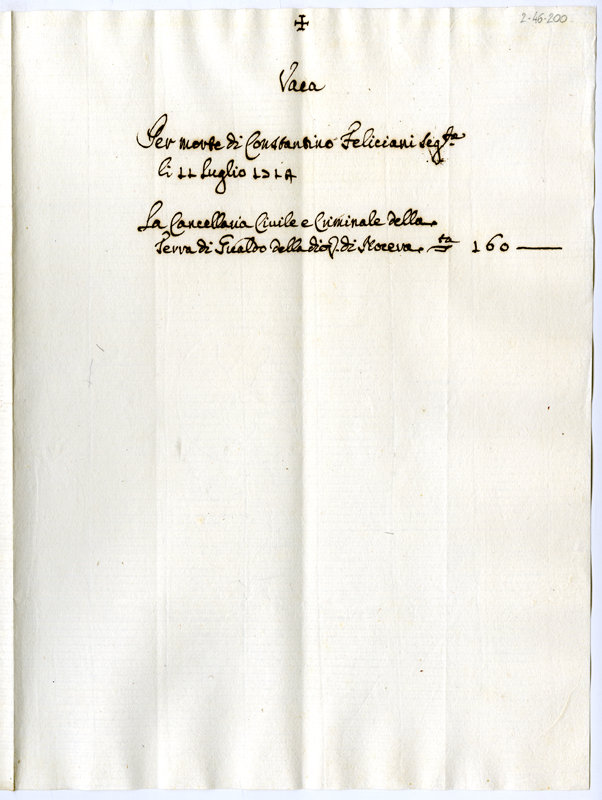 2-46-200
✠
Vaca
Per morte di Constantino Feliciani seg.ta
li 11 Luglio 1714
La Cancellaria Civile e Criminale della
Terra di Gualdo della dioc. di Nocera. 160